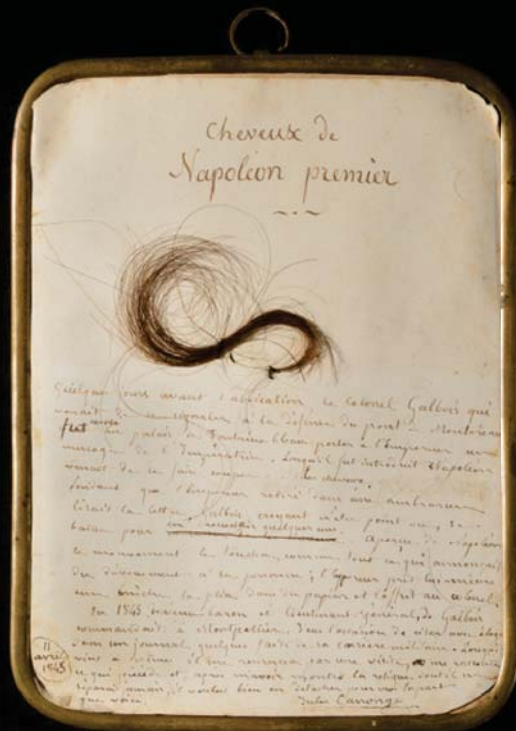 Cheveux de
Napoléon premier
Quelques jours avant l'abdication le Colonel Galbois qui
venait de se signaler à la défense du pont de Montereau
fut envoyé au palais de Fontainebleau porter à l'Empereur un
message de l'Impératrice. Lorsqu'il fut introduit Napoléon
venait de se faire couper les cheveux.
Pendant que l'Empereur retiré dans une embrasure
lisait la lettre Galbois, croyant n'être point vu, se
baissa pour en recueillir quelques uns. Aperçu de Napoléon
le mouvement le toucha, comme tout ce qui annonçait
du dévouement à sa personne; l'Empereur prit lui-même
une mèche, la plia dans du papier et l'offrit au colonel.
En 1845 devenu baron et lieutenant général, de Galbois
commandait à Montpellier. J'eus l'occasion de citer avec éloge
dans mon journal, quelques faits de sa carrière militaire. Lorsqu'il
vint me une visite, me raconta
ce qui précède et après m'avoir montré la relique dont il ne se
séparait jamais, il voulut bien en détacher pour moi la part
que voici. Jules
11
avril
1845